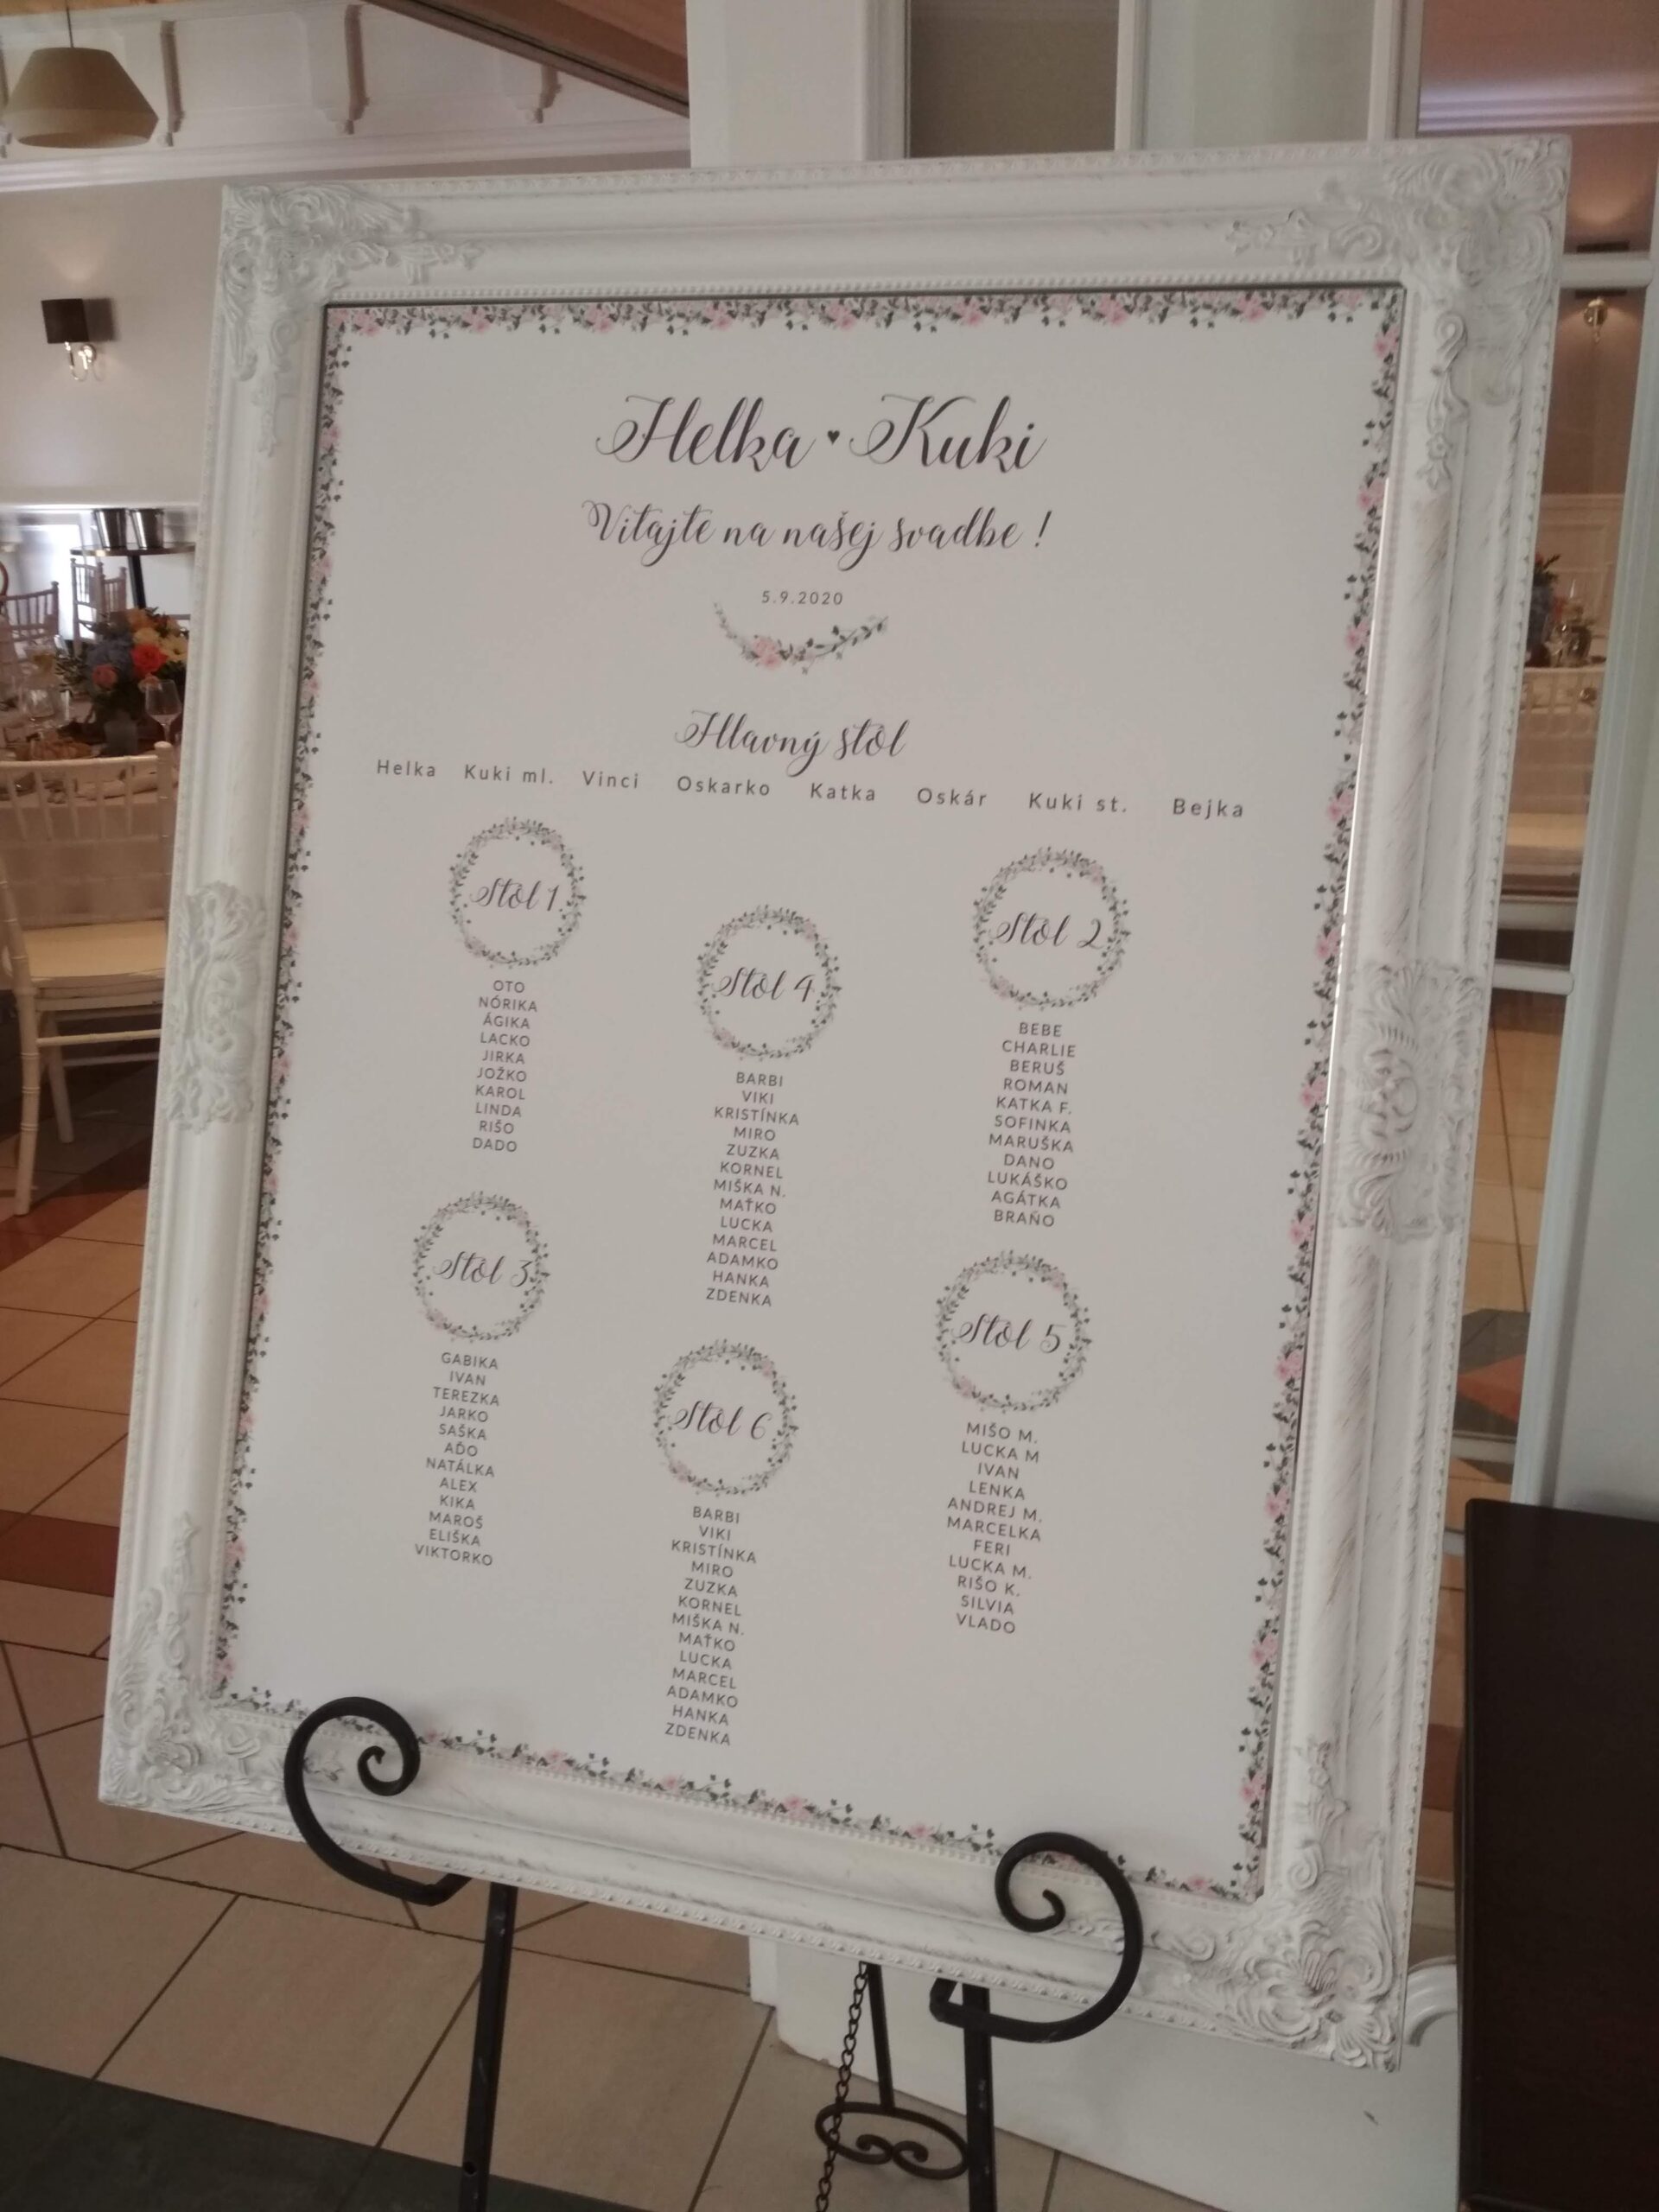 Helka ♥ Kuki
Vitajte na našej svadbe !
5.9.2020
Hlavný stôl
Helka Kuki ml. Vinci Oskarko Katka Oskár Kuki st. Bejka
Stôl 1
OTO
NÓRIKA
ÁGIKA
LACKO
JIRKA
JOŽKO
KAROL
LINDA
RIŠO
DADO
Stôl 4
BARBI
VIKI
KRISTÍNKA
MIRO
ZUZKA
KORNEL
MIŠKA N.
MAŤKO
LUCKA
MARCEL
ADAMKO
HANKA
ZDENKA
Stôl 2
BEBE
CHARLIE
BERUŠ
ROMAN
KATKA F.
SOFINKA
MARUŠKA
DANO
LUKÁŠKO
AGÁTKA
BRAŇO
Stôl 3
GABIKA
IVAN
TEREZKA
JARKO
SAŠKA
AĎO
NATÁLKA
ALEX
KIKA
MAROŠ
ELIŠKA
VIKTORKO
Stôl 6
BARBI
VIKI
KRISTÍNKA
MIRO
ZUZKA
KORNEL
MIŠKA N.
MAŤKO
LUCKA
MARCEL
ADAMKO
HANKA
ZDENKA
Stôl 5
MIŠO M.
LUCKA M
IVAN
LENKA
ANDREJ M.
MARCELKA
FERI
LUCKA M.
RIŠO K.
SILVIA
VLADO